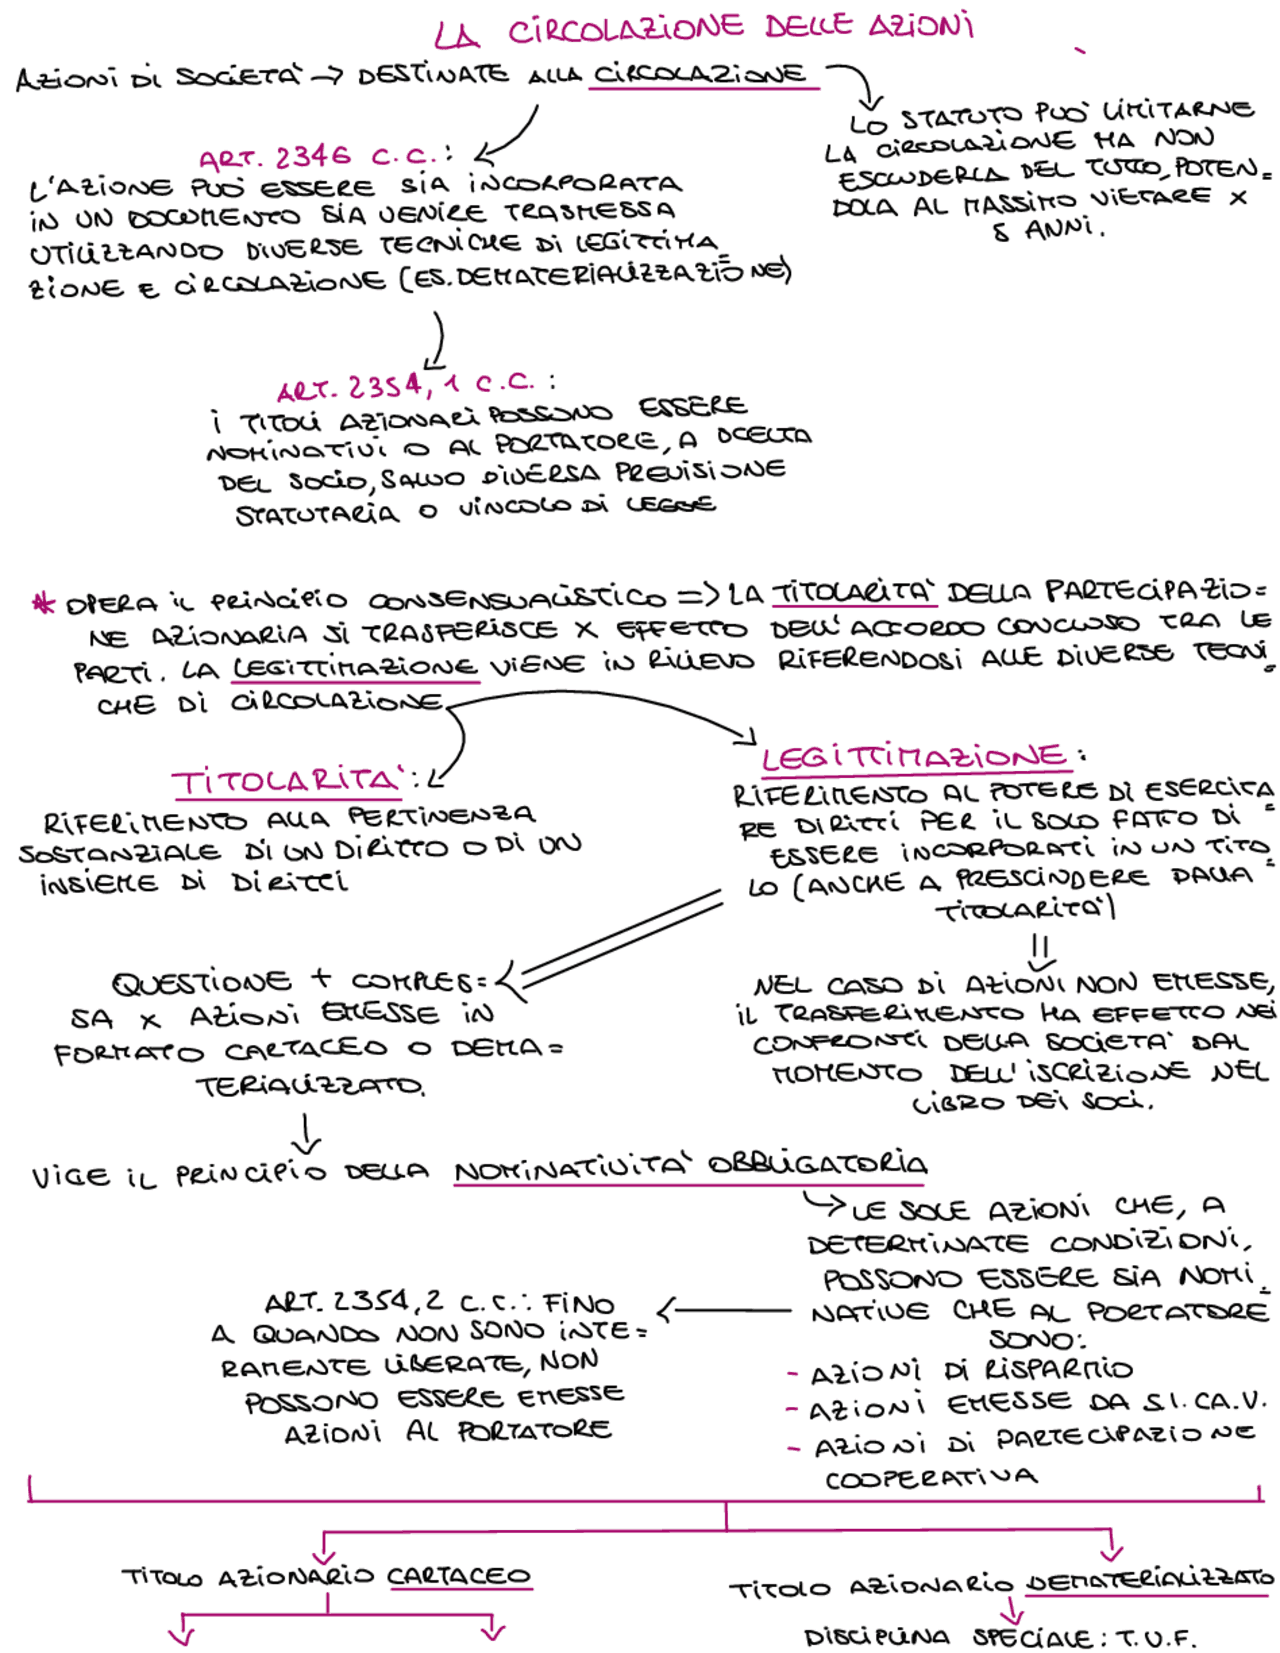 LA CIRCOLAZIONE DELLE AZIONI
AZIONI DI SOCIETÀ → DESTINATE ALLA CIRCOLAZIONE
LO STATUTO PUÒ LIMITARNE
LA CIRCOLAZIONE MA NON
ESCLUDERLA DEL TUTTO, POTEN=
DOLA AL MASSIMO VIETARE X
5 ANNI.
ART. 2346 C.C.:
L'AZIONE PUÒ ESSERE SIA INCORPORATA
IN UN DOCUMENTO SIA VENIRE TRASMESSA
UTILIZZANDO DIVERSE TECNICHE DI LEGITTIMA=
ZIONE E CIRCOLAZIONE (ES. DEMATERIALIZZAZIONE)
ART. 2354, 1 C.C.:
I TITOLI AZIONARI POSSONO ESSERE
NOMINATIVI O AL PORTATORE, A SCELTA
DEL SOCIO, SALVO DIVERSA PREVISIONE
STATUTARIA O VINCOLO DI LEGGE
* OPERA IL PRINCIPIO CONSENSUALISTICO => LA TITOLARITÀ DELLA PARTECIPAZIO=
NE AZIONARIA SI TRASFERISCE X EFFETTO DELL'ACCORDO CONCLUSO TRA LE
PARTI. LA LEGITTIMAZIONE VIENE IN RILIEVO RIFERENDOSI ALLE DIVERSE TECNI=
CHE DI CIRCOLAZIONE
TITOLARITÀ:
RIFERIMENTO ALLA PERTINENZA
SOSTANZIALE DI UN DIRITTO O DI UN
INSIEME DI DIRITTI
LEGITTIMAZIONE:
RIFERIMENTO AL POTERE DI ESERCITA=
RE DIRITTI PER IL SOLO FATTO DI
ESSERE INCORPORATI IN UN TITO=
LO (ANCHE A PRESCINDERE DALLA
TITOLARITÀ)
QUESTIONE + COMPLES=
SA X AZIONI EMESSE IN
FORMATO CARTACEO O DEMA=
TERIALIZZATO.
NEL CASO DI AZIONI NON EMESSE,
IL TRASFERIMENTO HA EFFETTO NEI
CONFRONTI DELLA SOCIETÀ DAL
MOMENTO DELL'ISCRIZIONE NEL
LIBRO DEI SOCI.
VIGE IL PRINCIPIO DELLA NOMINATIVITÀ OBBLIGATORIA
LE SOLE AZIONI CHE, A
DETERMINATE CONDIZIONI,
POSSONO ESSERE SIA NOMI=
NATIVE CHE AL PORTATORE
SONO:
- AZIONI DI RISPARMIO
- AZIONI EMESSE DA S.I.CA.V.
- AZIONI DI PARTECIPAZIONE
COOPERATIVA
ART. 2354, 2 C.C.: FINO
A QUANDO NON SONO INTE=
RAMENTE LIBERATE, NON
POSSONO ESSERE EMESSE
AZIONI AL PORTATORE
TITOLO AZIONARIO CARTACEO
TITOLO AZIONARIO DEMATERIALIZZATO
DISCIPLINA SPECIALE: T.U.F.